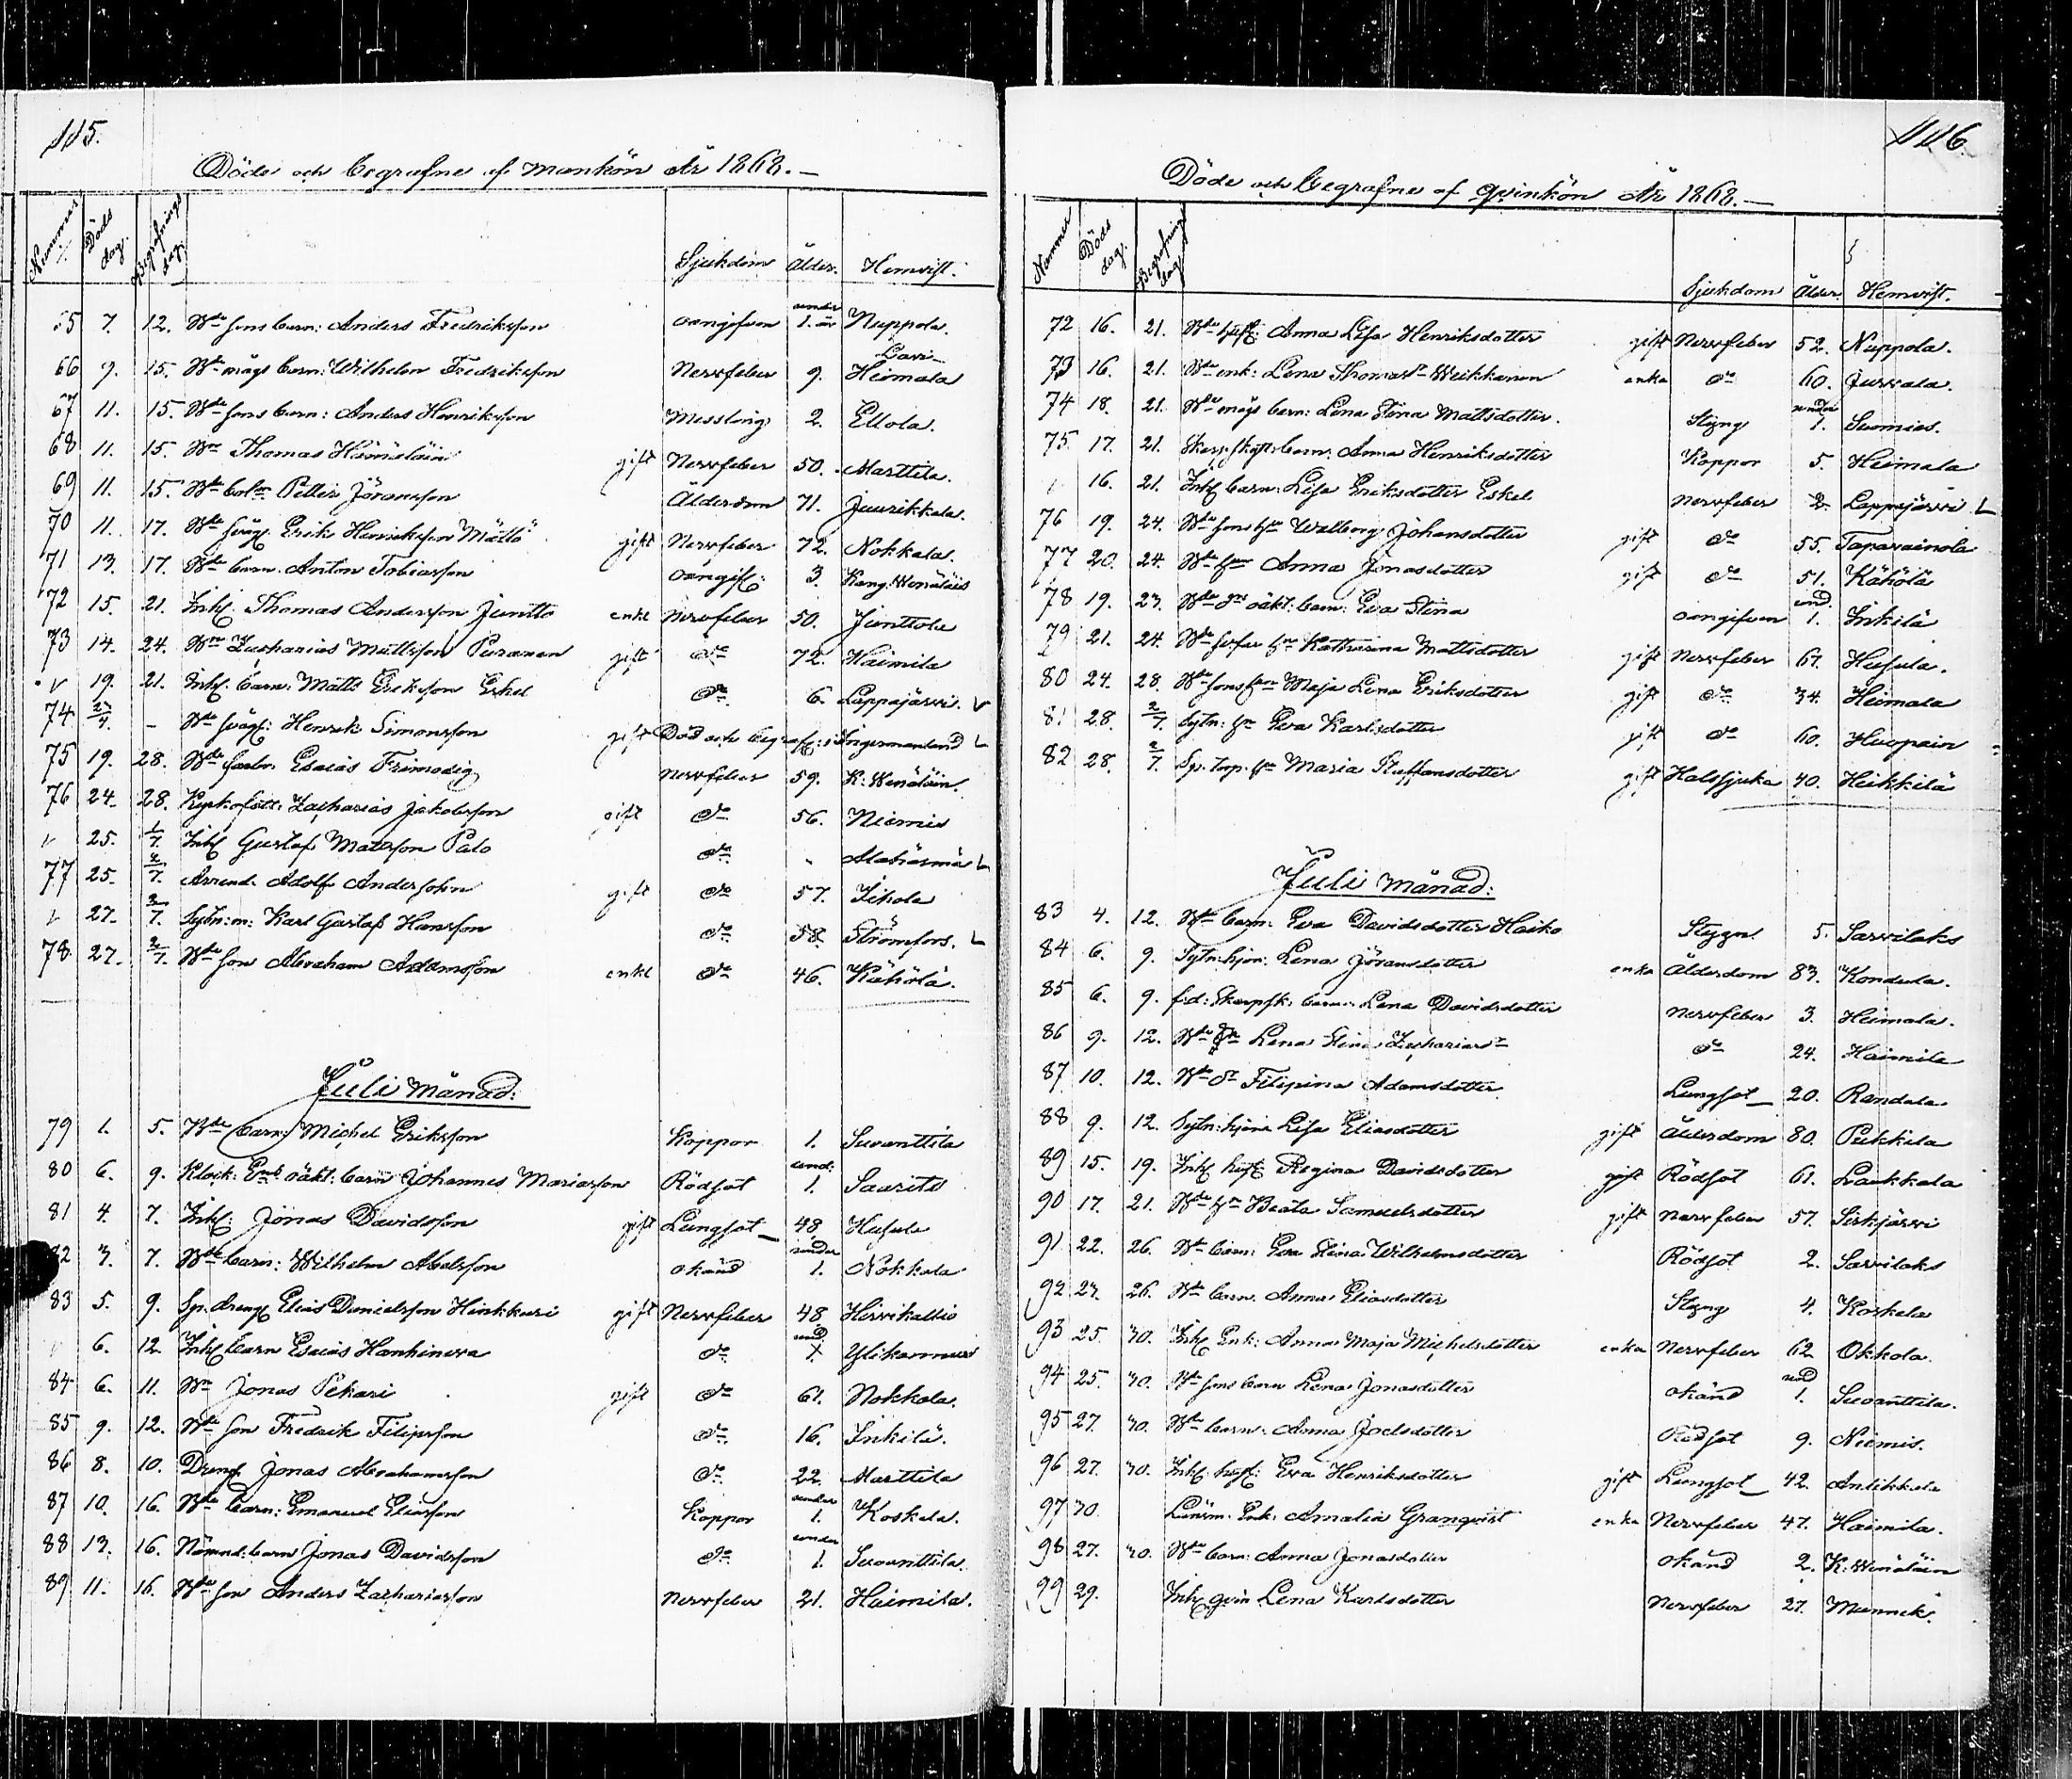 115.
Döde och begrafne af mankön År 1868.
Nummer Döds dag. Begrafnings dag. Sjukdom Ålder. Hemvist.
65 7. 12. Bde sons barn: Anders Fredriksson oangifven under 1. år Nuppola.
66 9. 15. Bde mågs barn: Wilhelm Fredriksson Nervfeber 9. Heimala
67 11. 15. Bde sons barn: Anders Henriksson Messling 2. Ellola.
68 11. 15. Bn Thomas Hämäläin gift Nervfeber 50. Marttila.
69 11. 15. Petter Jöransson Ålderdom 71. Juurikkala.
70 11. 17. Bde svåg. Erik Henriksson Mättö gift Nervfeber 72. Nokkala.
71 13. 17. Bde barn. Anton Tobiasson oangif: 3. Kang. Wenäläis
72 15. 21. Inh. Thomas Andersson Juntto enkl Nervfeber 50. Junttola
73 14. 24. Bn Zacharias Mattsson Puranen gift do 72. Haimila
v 19. 21. Inh. barn: Matts Eriksson Eskel do 6. Lappajärvi.
74 – Bde svåg: Henrik Simonsson gift Död och begraf: i Ingermanland
75 19. 28. Esaias Frimodig Nervfeber 59. K: Wenäläin.
76 24. 28. Zacharias Jakobsson gift do 56. Niemis
v 25. 1/7. Inh Gustaf Mattsson Palo do Alahärmä
77 25. 2/7. Arrend. Adolf Andersohn gift do 57. Ikola
v 27. 2/7. Sytn: m: Karl Gustaf Hansson do 58. Strömfors.
78. 27. 2/7. Bde son Abraham Adamsson enkl do 46. Kähölä.
Juli Månad:
79 1. 5. Bde barn: Michel Eriksson Koppor 1. Suvanttila
80 6. 9. Klock: oäkt: barn Johannes Mariasson Rödsot und: 1. Saurila
81 4. 7. Inh: Jonas Davidsson gift Lungsot 48 Husula
82 3. 7. Bde barn: Wilhelm Abelsson okänd under 1. Nokkala
83 5. 9. Sp. dreng Elias Danielsson Hinkkuri gift Nervfeber 48. Hirvikallio
6. 12. Inh barn Esaias Hanhineva do und 1. Ylikannus
84 6. 11. Bn Jonas Pekari gift do 61. Nokkala.
85 9. 12. Bde son Fredrik Filipsson do 16. Inkilä.
86 8. 10. Dreng Jonas Abrahamsson do 22. Marttila
87 10. 16. Bde barn: Emanuel Eliasson Koppor under 1. Koskela.
88 13. 16. Nämnd: barn Jonas Davidsson do under 1. Suvanttila.
89 11. 16. Bde son Anders Zachariasson Nervfeber 21. Haimila.
116.
Döde och begrafne af qvinkön År 1868.
Nummer Döds dag. Begrafnings dag. Sjukdom Ålder. Hemvist.
72 16. 21. Bde hust: Anna Lisa Henriksdotter gift Nervfeber 52. Nuppola.
73 16. 21. Bde enk: Lena Thomasdr Weikkanen enka do 60. Jurvala.
74 18. 21. Bde mågs barn: Lena Stina Mattsdotter. Styng under 1. Suomies.
75. 17. 21. Skarpskytt: barn: Anna Henriksdotter Koppor 5. Heimala
16. 21. Inh barn: Lisa Eriksdotter Eskel Nervfeber 2. Lappajärvi
76 19. 24. Bde sons hu Walborg Johansdotter gift do 55. Tapavainola
77 20. 24. Bde hu Anna Jonasdotter gift do 51. Kähölä
78 19. 23. Bde oäkt: barn: Eva Stina oangifven und. 1. Inkilä
79 21. 24. Katharina Mattsdotter gift Nervfeber 67. Husula.
80 24. 28. Bde sons hu Maja Lena Eriksdotter gift do 34. Heimala
81 28. 2/7. Sytn: hu Eva Karlsdotter gift do 60. Huopain
82 28. 2/7. Sp. torp. hu Maria Staffansdotter gift Halssjuka 40. Heikkilä
Juli Månad:
83 4. 12. Bde barn: Eva Davidsdotter Haiko Styng. 5. Sarvilaks
84 6. 9. Sytn: hjon: Lena Jöransdotter enka Ålderdom 83. Kondula.
85 6. 9. f.d. Skarpsk: barn: Lena Davidsdotter Nervfeber 3. Heimala.
86 9. 12. Lena Stina Zacharias do 24. Haimila
87 10. 12. Bde dr Filipina Adamsdotter Lungsot 20. Randala
88 9. 12. Sytn: hjon Lisa Eliasdotter gift Ålderdom 80. Pukkila
89 15. 19. Inh hust. Regina Davidsdotter gift Rödsot 61. Laukkala
90 17. 21. Bde hu Beata Samuelsdotter gift Nervfeber 57. Sirkjärvi
91 22. 26. Bde barn: Eva Stina Wilhelmsdotter Rödsot 2. Sarvilaks
92 23. 26. Bde barn. Anna Eliasdotter Styng 4. Koskela
93 25. 30. Inh Enk: Anna Maja Michelsdotter enka Nervfeber 62 Okkola.
94 25. 30. Bde sons barn Lena Jonasdotter okänd und 1. Suvanttila.
95 27. 30. Bde barn: Anna Joelsdotter Rödsot 9. Niemis.
96 27. 30. Inh. hust: Eva Henriksdotter gift Lungsot 42. Antikkala
97 30. Länsm. Enk: Amalia Granqvist enka Nervfeber 47. Haimila.
98 27. 30. Bde barn: Anna Jonasdotter okänd 2. K: Wenäläin
99 29. Inh. qvin Lena Karlsdotter Nervfeber 27. Munnik.